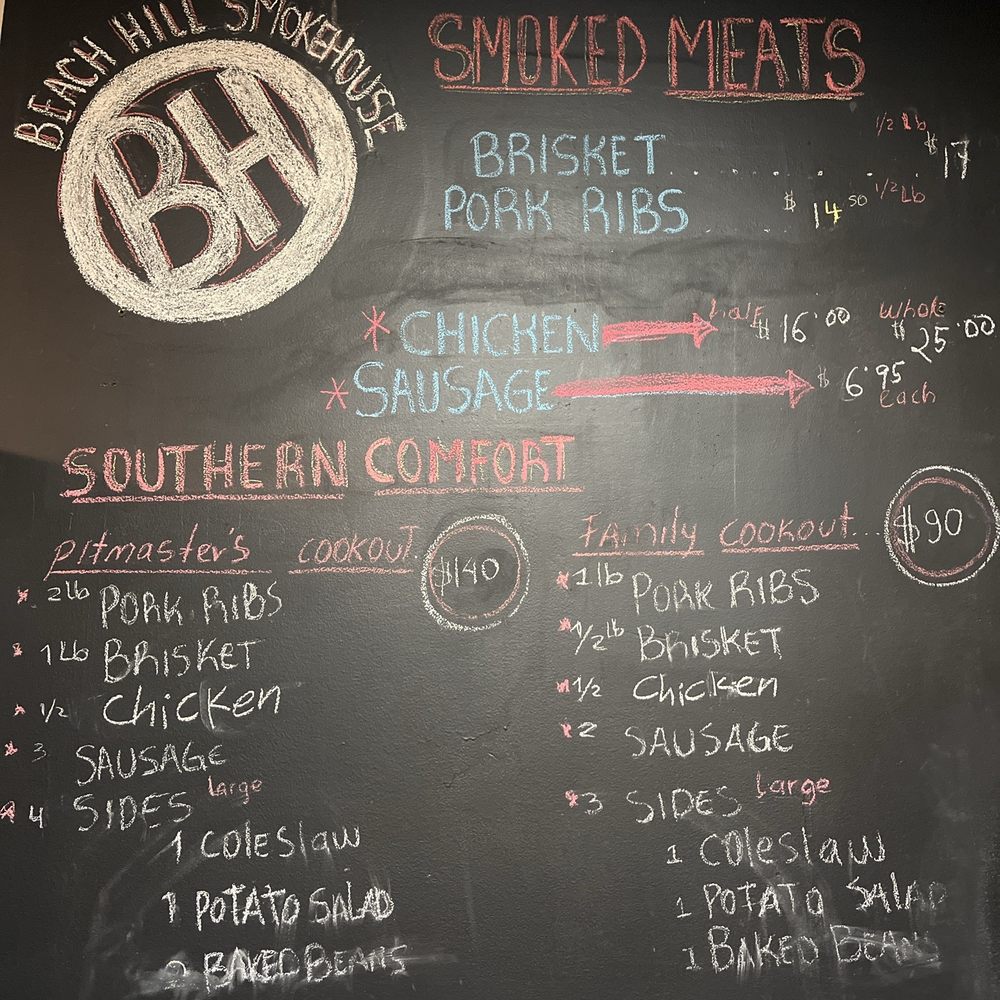 BEACH HILL SMOKEHOUSE
BH
SMOKED MEATS
BRISKET . . . . . . . 1/2 Lb $17
PORK RIBS . . $14.50 1/2 Lb
* CHICKEN half $16.00 Whole $25.00
* SAUSAGE $6.95 each
SOUTHERN COMFORT
Pitmaster's cookout $140
* 2lb PORK RIBS
* 1 Lb BRISKET
* 1/2 Chicken
* 3 SAUSAGE
* 4 SIDES Large
1 Coleslaw
1 POTATO SALAD
2 BAKED BEANS
Family cookout... $90
* 1 lb PORK RIBS
* 1/2 lb BRISKET
* 1/2 Chicken
* 2 SAUSAGE
* 3 SIDES Large
1 Coleslaw
1 POTATO SALAD
1 BAKED BEANS